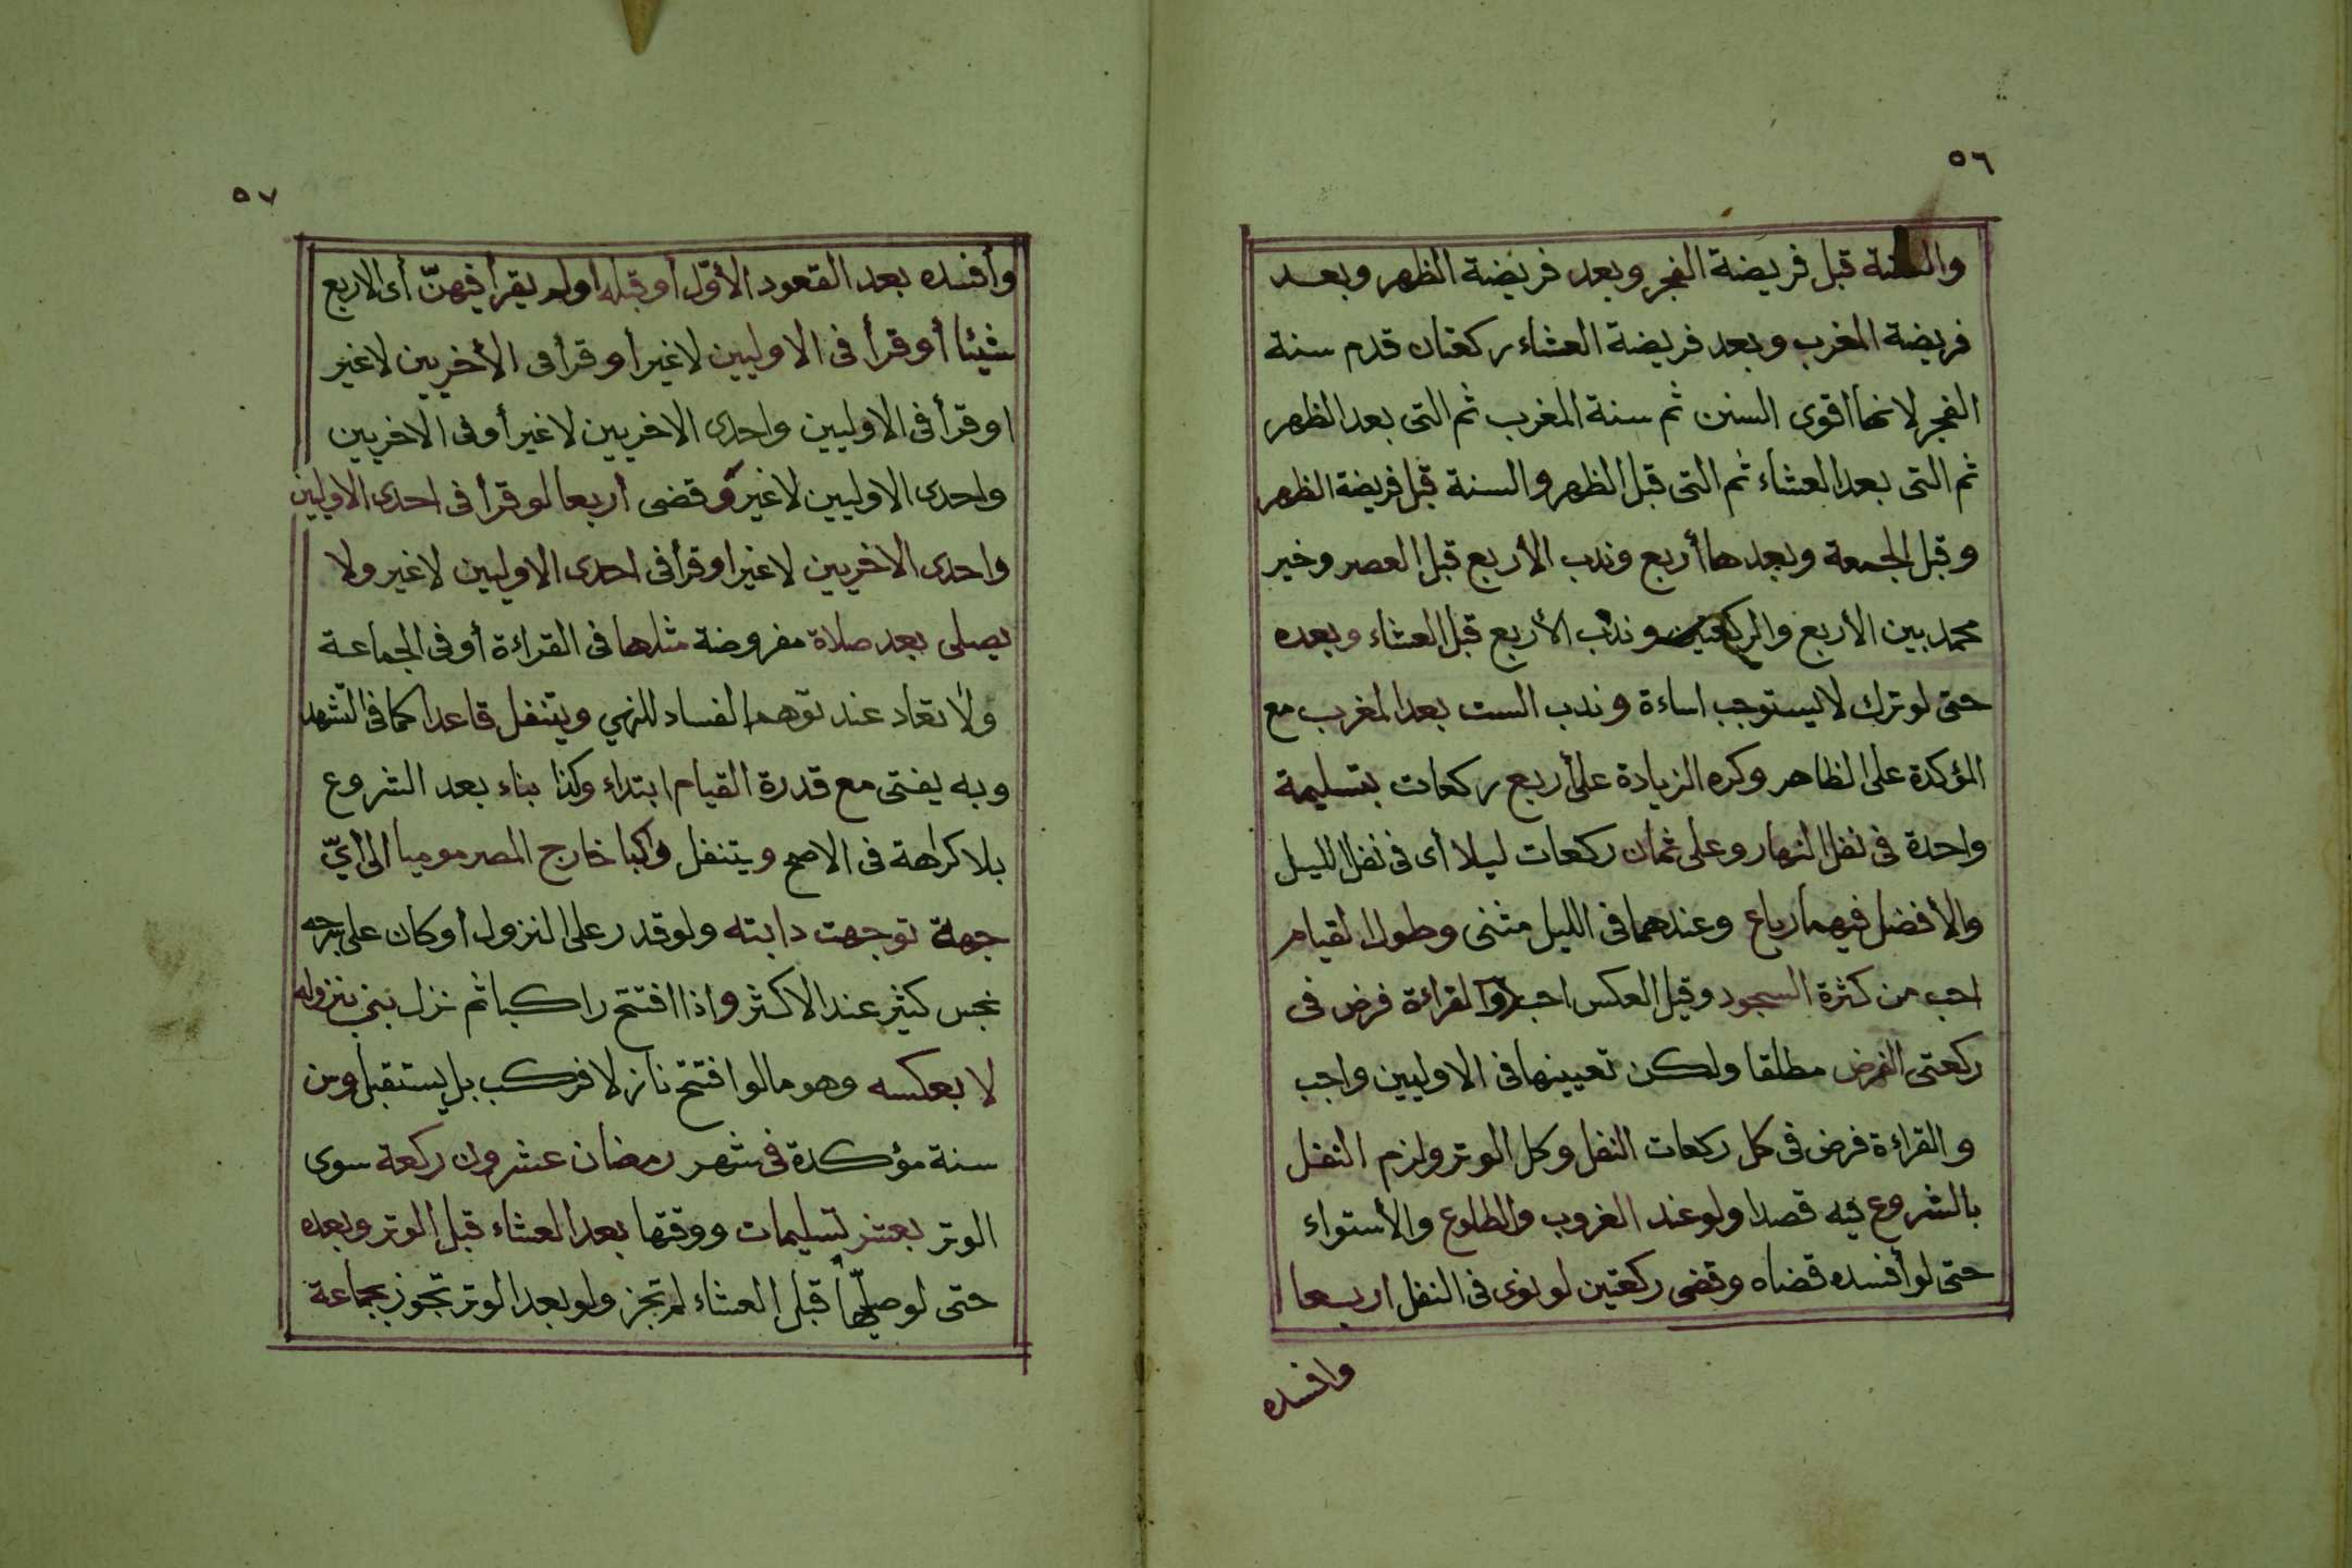 ٥٦
والسنة قبل فريضة الفجر وبعد فريضة الظهر وبعد
فريضة المغرب وبعد فريضة العشاء ركعتان قدم سنة
الفجر لانها اقوى السنن ثم سنة المغرب ثم التى بعد الظهر
ثم التى بعد العشاء ثم التى قبل الظهر والسنة قبل فريضة الظهر
وقبل الجمعة وبعدها أربع وندب الأربع قبل العصر وخير
محمد بين الأربع والركعتين وندب الأربع قبل العشاء وبعده
حتى لو ترك لا يستوجب اساءة وندب الست بعد المغرب مع
المؤكدة على الظاهر وكره الزيادة على أربع ركعات بتسليمة
واحدة فى نفل النهار وعلى ثمان ركعات ليلا أى فى نفل الليل
والأفضل فيهما رباع وعندهما فى الليل مثنى وطول القيام
احب من كثرة السجود وقيل العكس احب والقراءة فرض فى
ركعتى الفرض مطلقا ولكن تعيينها فى الاوليين واجب
والقراءة فرض فى كل ركعات النفل وكل الوتر ولزم النفل
بالشروع فيه قصدا ولو عند الغروب والطلوع والأستواء
حتى لو أفسده قضاه وقضى ركعتين لو نوى فى النفل اربعا
وافسده
٥٧
وأفسده بعد القعود الأوّل أو قبله أو لم يقرأ فيهنّ أى الاربع
شيئا أو قرأ فى الاوليين لا غير أو قرأ فى الأخريين لا غير
او قرأ فى الاوليين واحدى الاخريين لا غير أو فى الاخريين
واحدى الاوليين لا غير وقضى أربعا لو قرأ فى احدى الاوليين
واحدى الاخريين لا غير او قرأ فى احدى الاوليين لا غير ولا
يصلى بعد صلاة مفروضة مثلها فى القراءة أو فى الجماعة
ولا تعاد عند توهم الفساد للنهي ويتنفل قاعدا كما فى التشهد
وبه يفتى مع قدرة القيام ابتداء وكذا بناء بعد الشروع
بلا كراهة فى الاصح ويتنفل راكبا خارج المصر موميا الى أيّ
جهة توجهت دابته ولو قدر على النزول أو كان على سرجه
نجس كثير عند الاكثر واذا افتتح راكبا ثم نزل بنى بنزوله
لا بعكسه وهو ما لو افتتح نازلا فركب بل يستقبل وسن
سنة مؤكدة فى شهر رمضان عشرون ركعة سوى
الوتر بعشر تسليمات ووقتها بعد العشاء قبل الوتر وبعده
حتى لو صلّيها قبل العشاء لم تجز ولو بعد الوتر تجوز بجماعة